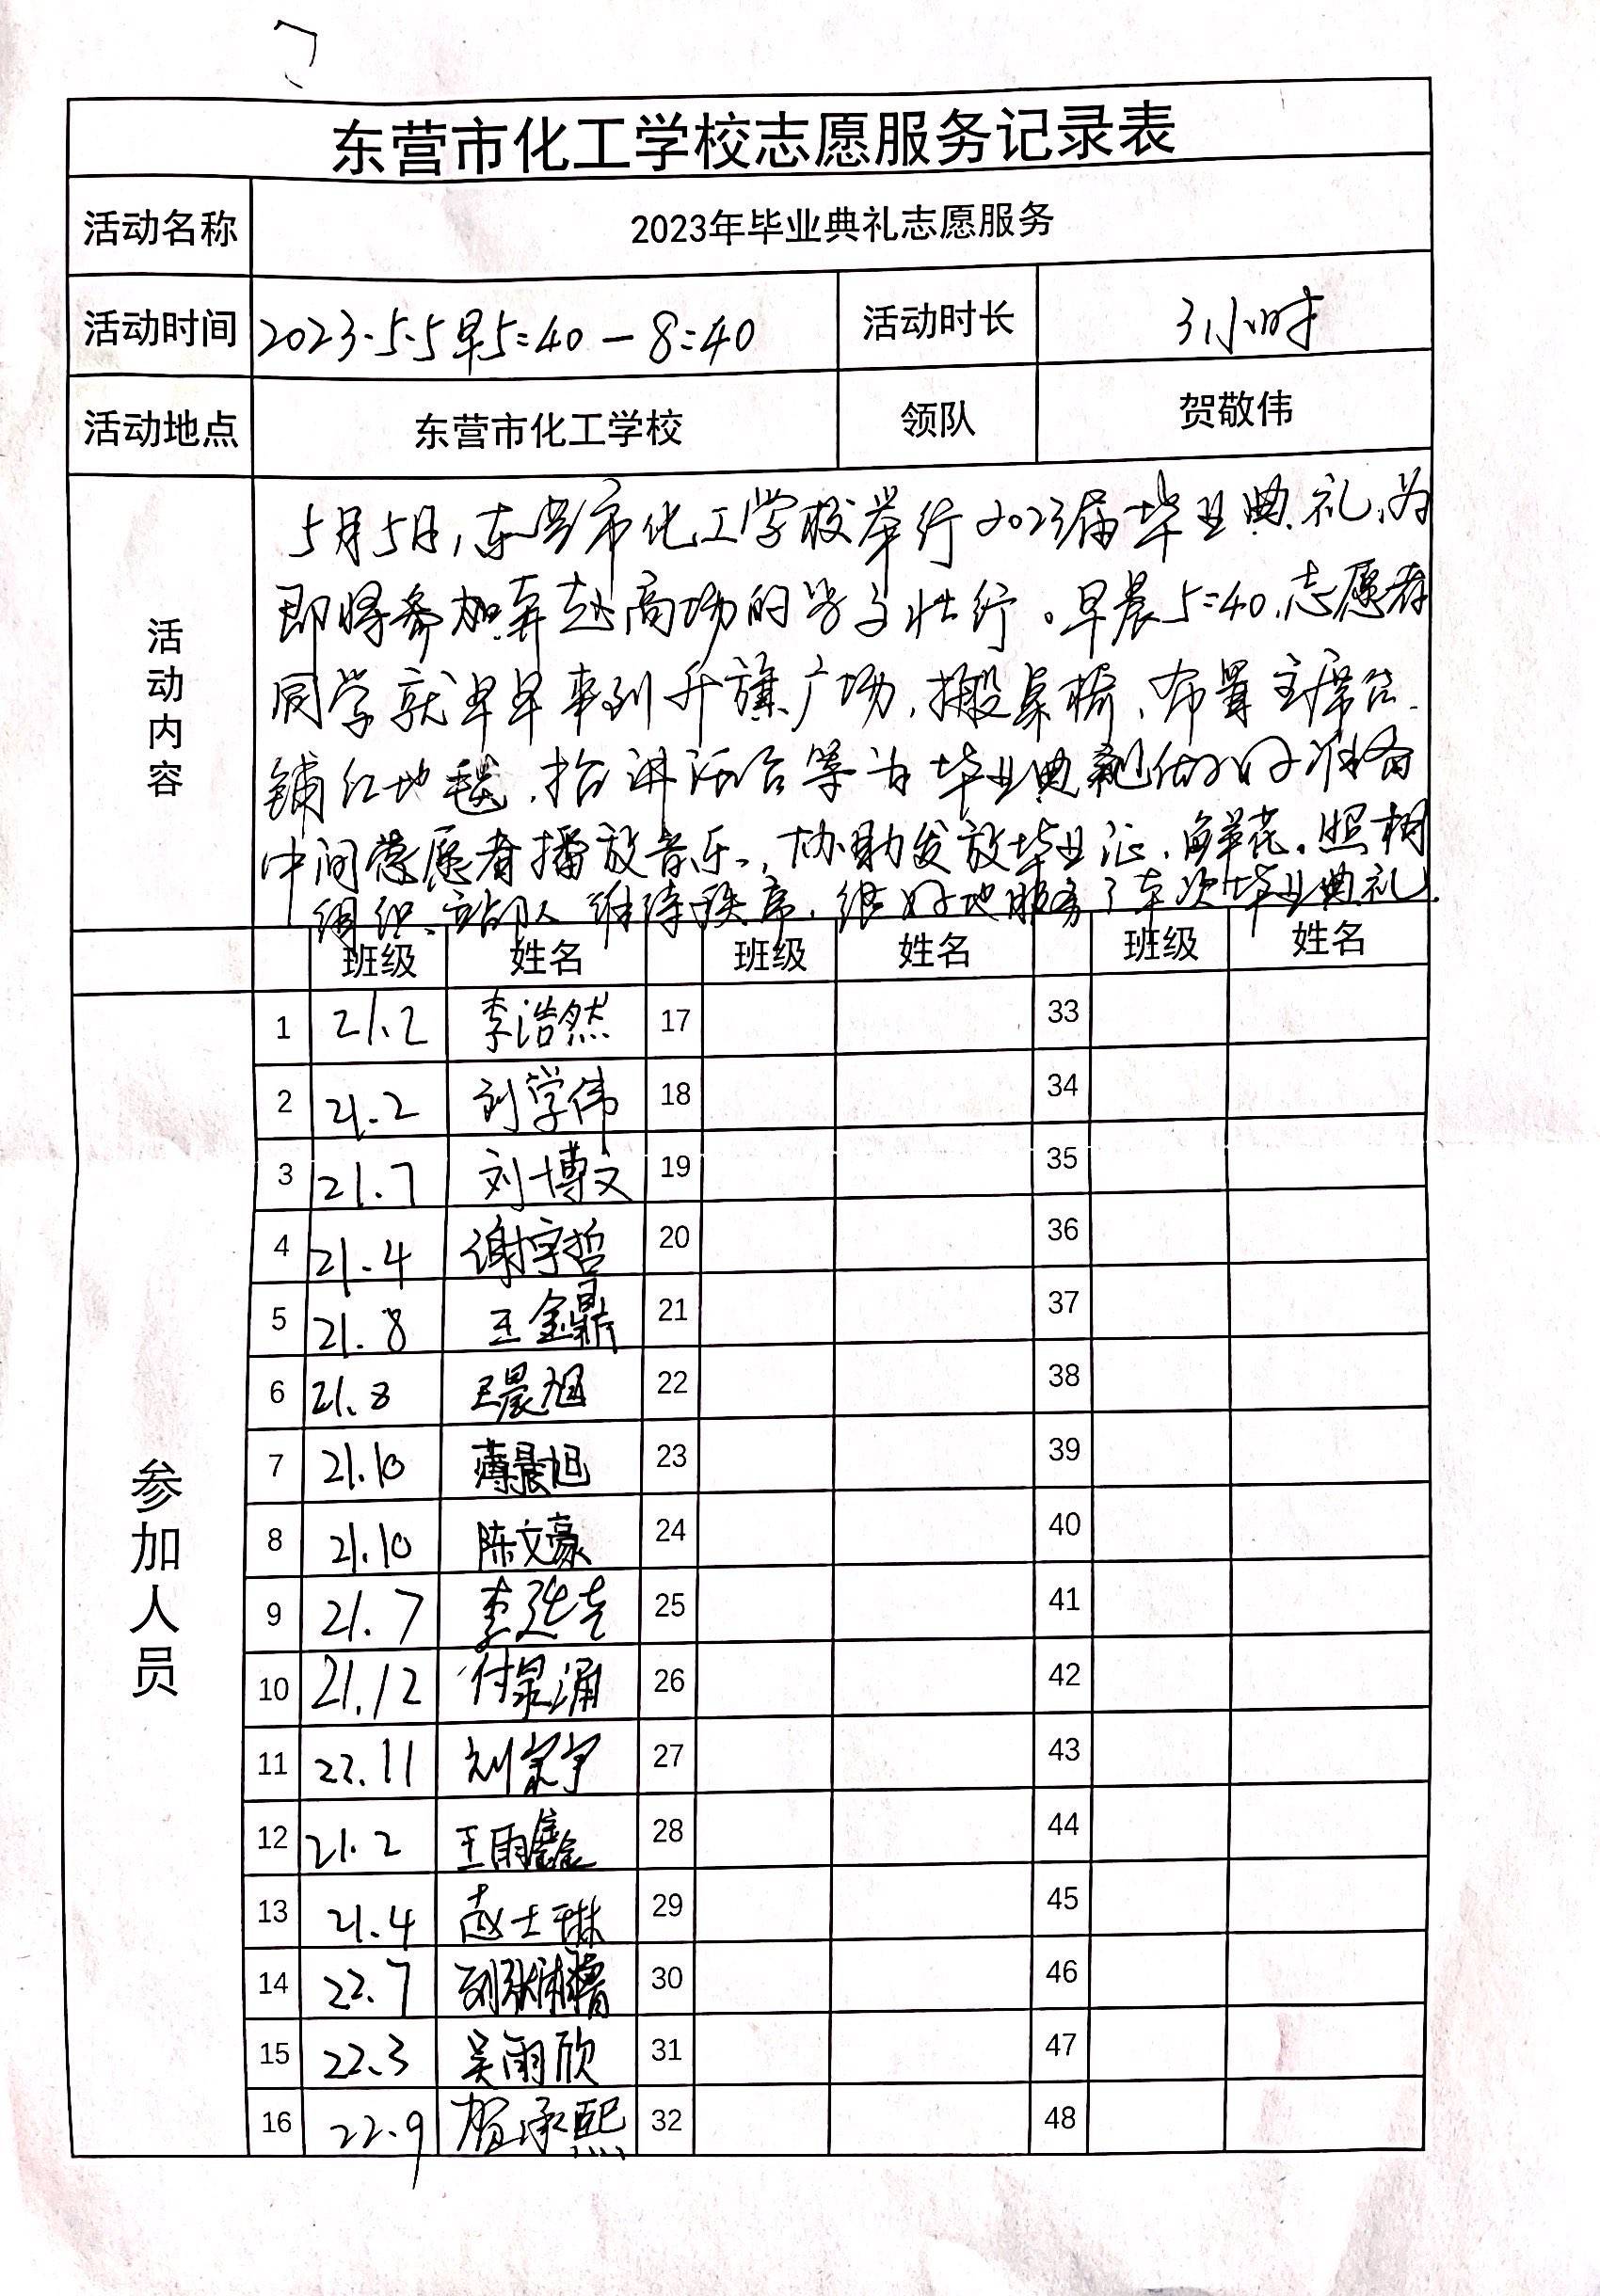 东营市化工学校志愿服务记录表
活动名称 2023年毕业典礼志愿服务
活动时间 2023.5.5早5:40-8:40 活动时长 3小时
活动地点 东营市化工学校 领队 贺敬伟
活动内容
5月5日,东营市化工学校举行2023届毕业典礼,为
即将参加奔赴高场的学子壮行。早晨5:40,志愿者
同学就早早来到升旗广场,搬桌椅、布置主席台、
铺红地毯、抬讲话台等为毕业典礼做好准备
中间志愿者播放音乐,协助发放毕业证、鲜花。照相
组织站队 维持秩序,很好地服务了本次毕业典礼.
班级 姓名 班级 姓名 班级 姓名
参加人员
1 21.2 李浩然 17 33
2 21.2 刘学伟 18 34
3 21.7 刘博文 19 35
4 21.4 谢宇哲 20 36
5 21.8 王金鼎 21 37
6 21.8 王晨旭 22 38
7 21.10 薄晨旭 23 39
8 21.10 陈文豪 24 40
9 21.7 李延吉 25 41
10 21.12 付泉涌 26 42
11 22.11 刘宗宇 27 43
12 21.2 王雨鑫 28 44
13 21.4 赵士琳 29 45
14 22.7 30 46
15 22.3 吴雨欣 31 47
16 22.9 贺承熙 32 48